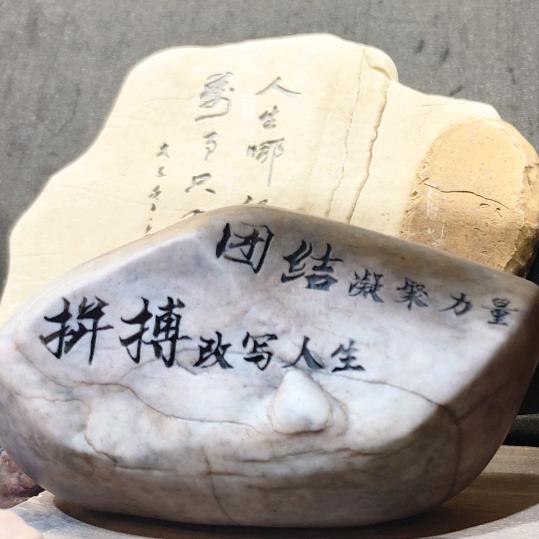 团结凝聚力量
拼搏改写人生
人生哪
万事只